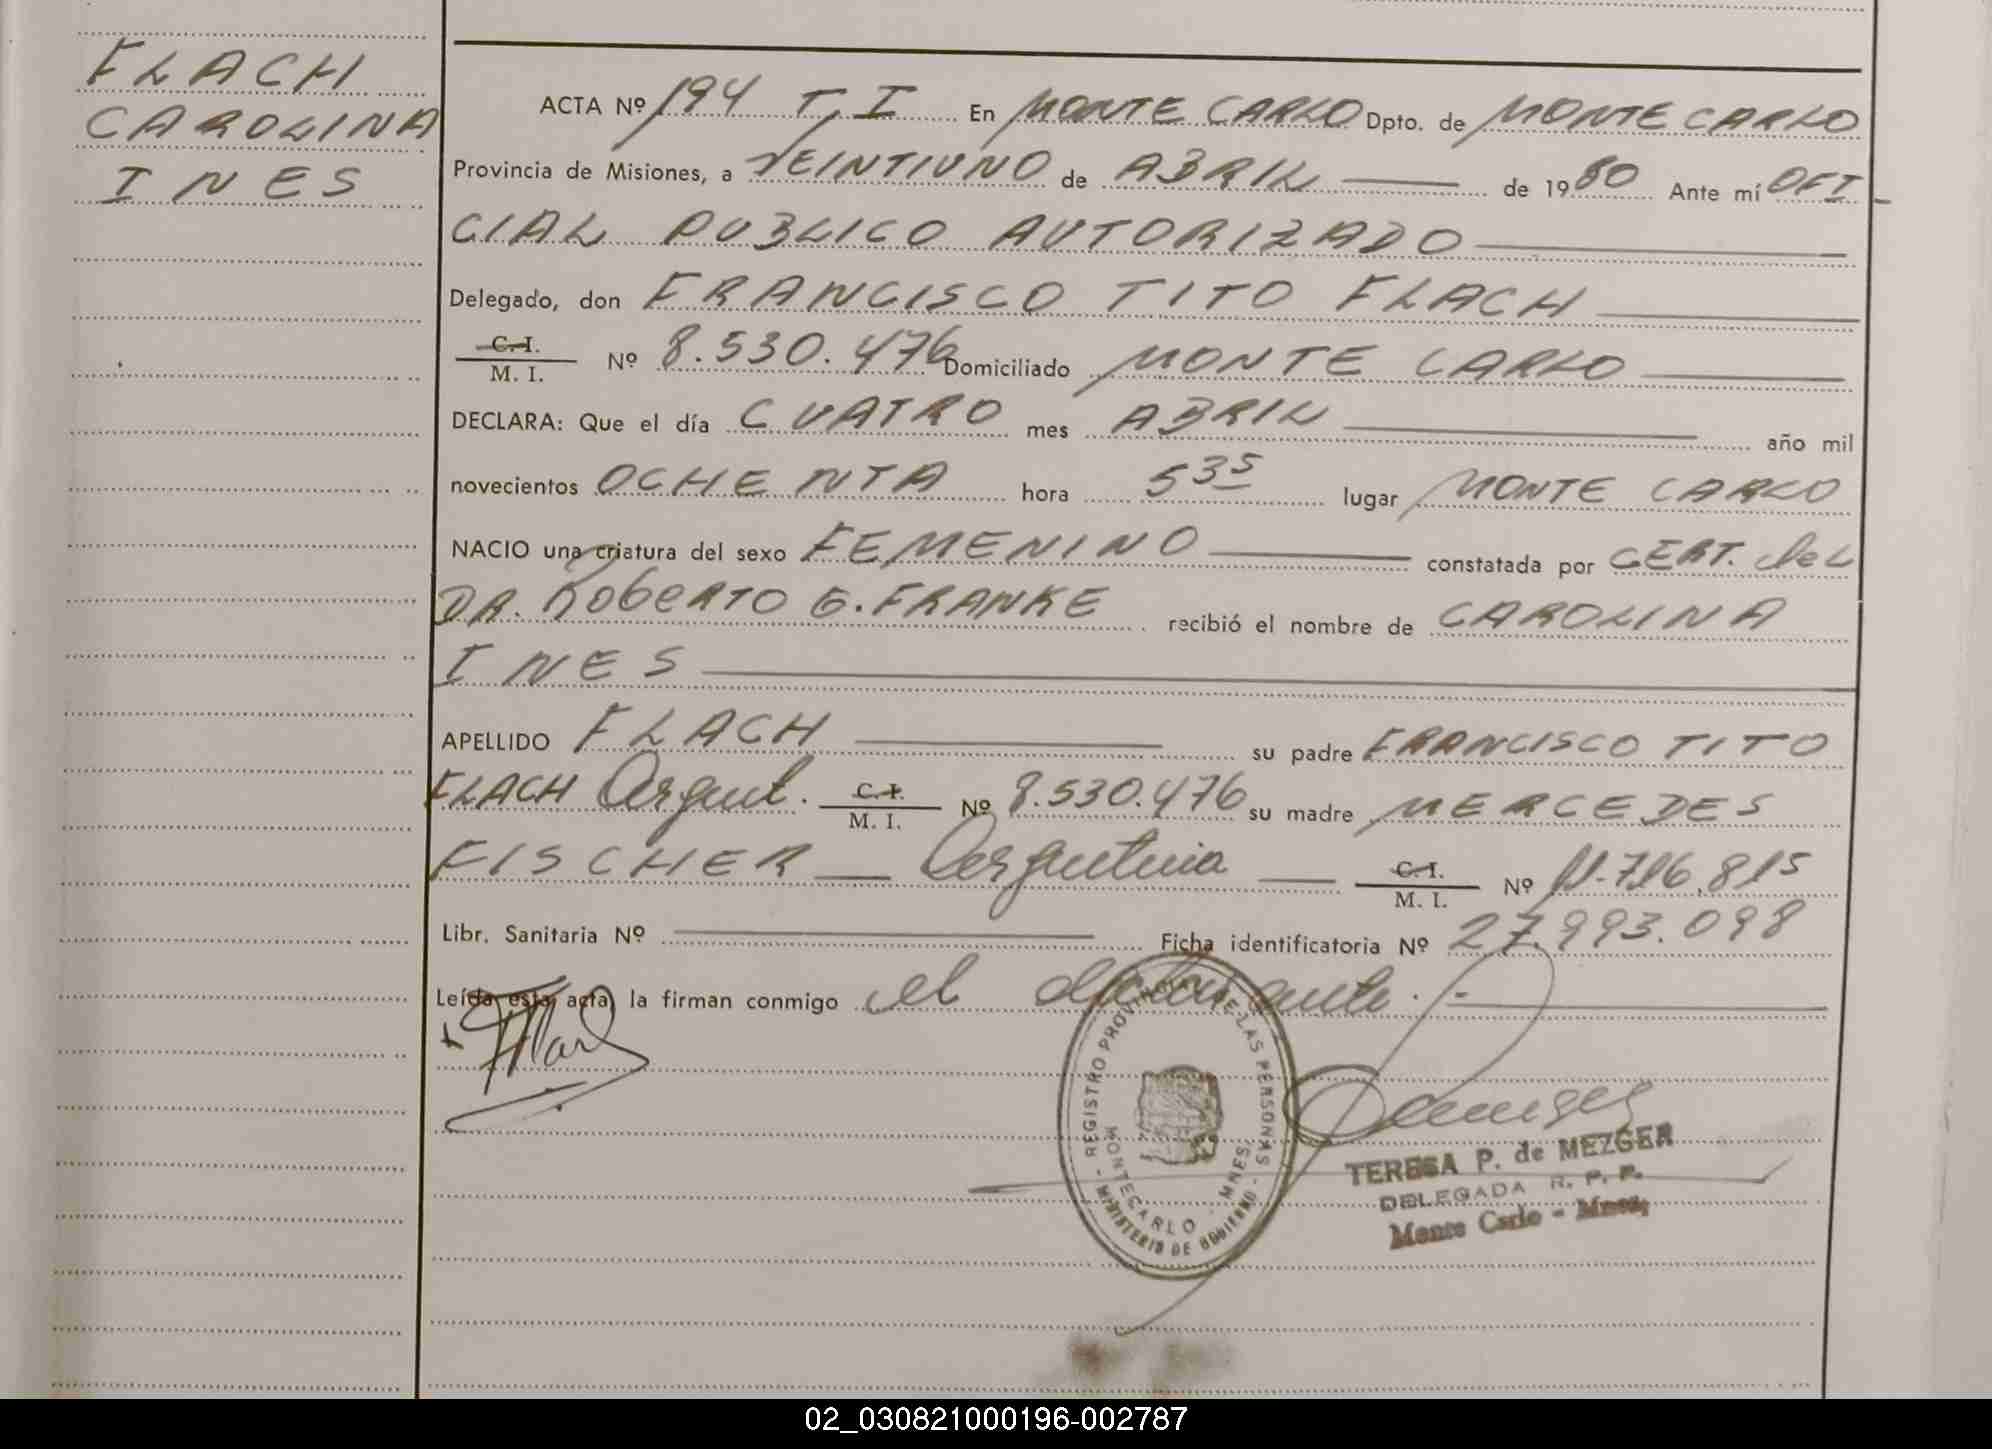 FLACH
CAROLINA
INES
ACTA Nº 194 T, I En MONTE CARLO Dpto. de MONTE CARLO
Provincia de Misiones, a VEINTIUNO de ABRIL de 1980 Ante mí OFI-
CIAL PUBLICO AUTORIZADO
Delegado, don FRANCISCO TITO FLACH
C. I.
M. I. Nº 8.530.476 Domiciliado MONTE CARLO
DECLARA: Que el día CUATRO mes ABRIL año mil
novecientos OCHENTA hora 5 35 lugar MONTE CARLO
NACIO una criatura del sexo FEMENINO constatada por CERT. del
DR. RobeRTO G. FRANKE recibió el nombre de CAROLINA
INES
APELLIDO FLACH su padre FRANCISCO TITO
FLACH Argent. C. I.
M. I. Nº 8.530.476 su madre MERCEDES
FISCHER Argentina C. I.
M. I. Nº 11.716.815
Libr. Sanitaria Nº Ficha identificatoria Nº 27.993.098
Leída esta acta, la firman conmigo el declarante.
REGISTRO PROVINCIAL DE LAS PERSONAS
MONTECARLO - MNES.
MINISTERIO DE GOBIERNO
TERESA P. de MEZGER
DELEGADA R. P. P.
Monte Carlo - Mnes,
02_030821000196-002787